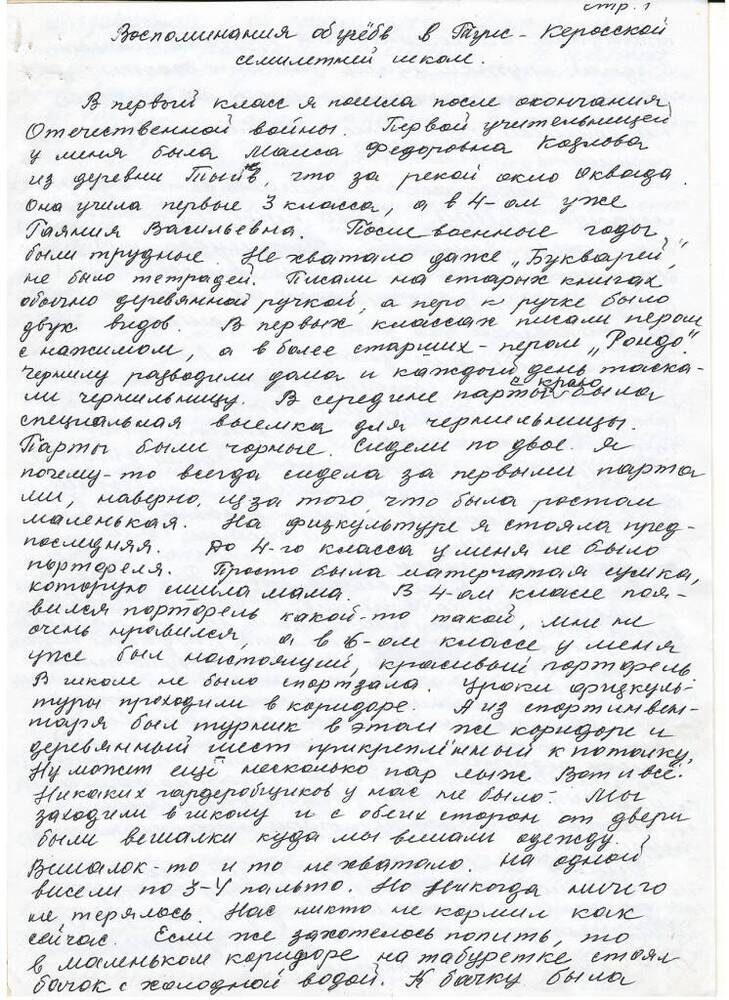 стр. 1
Воспоминания об учёбе в Турис - Керосской
семилетней школе.
В первый класс я пошла после окончания
Отечественной войны. Первой учительницей
у меня была Маиса Федоровна Козлова
из деревни что за рекой около
Она учила первые 3 класса, а в 4-ом уже
Васильевна. Послевоенные годы
были трудные. Не хватало даже „Букварей",
не было тетрадей. Писали на старых книгах
обычно деревянной ручкой, а перо к ручке было
двух видов. В первых классах писали пером
с нажимом, а в более старших - пером „Рондо".
Чернилу разводили дома и каждый день таска-
ли чернильницу. В середине парты с краю была
специальная выемка для чернильницы.
Парты были чорные. Сидели по двое. Я
почему-то всегда сидела за первыми парта
ми, наверно, из за того, что была ростом
маленькая. На физкультуре я стояла пред-
последняя. До 4-го класса у меня не было
портфеля. Просто была матерчатая сумка,
которую сшила мама. В 4-ом классе поя-
вился портфель какой-то такой, мне не
очень нравился, а в 6-ом классе у меня
уже был настоящий, красивый портфель.
В школе не было спортзала. Уроки физкуль-
туры проходили в коридоре. А из спортинвен-
таря был турник в этом же коридоре и
деревянный шест прикреплённый к потолку,
Ну может ещё несколько пар лыж. Вот и всё.
Никаких гардеробщиков у нас не было. Мы
заходили в школу и с обеих сторон от двери
были вешалки куда мы вешали одежду.
Вешалок-то и то не хватало. На одной
висели по 3-4 пальто. Но никогда ничего
не терялось. Нас никто не кормил как
сейчас. Если же захотелось попить, то
в маленьком коридоре на табуретке стоял
бачок с холодной водой. К бачку была